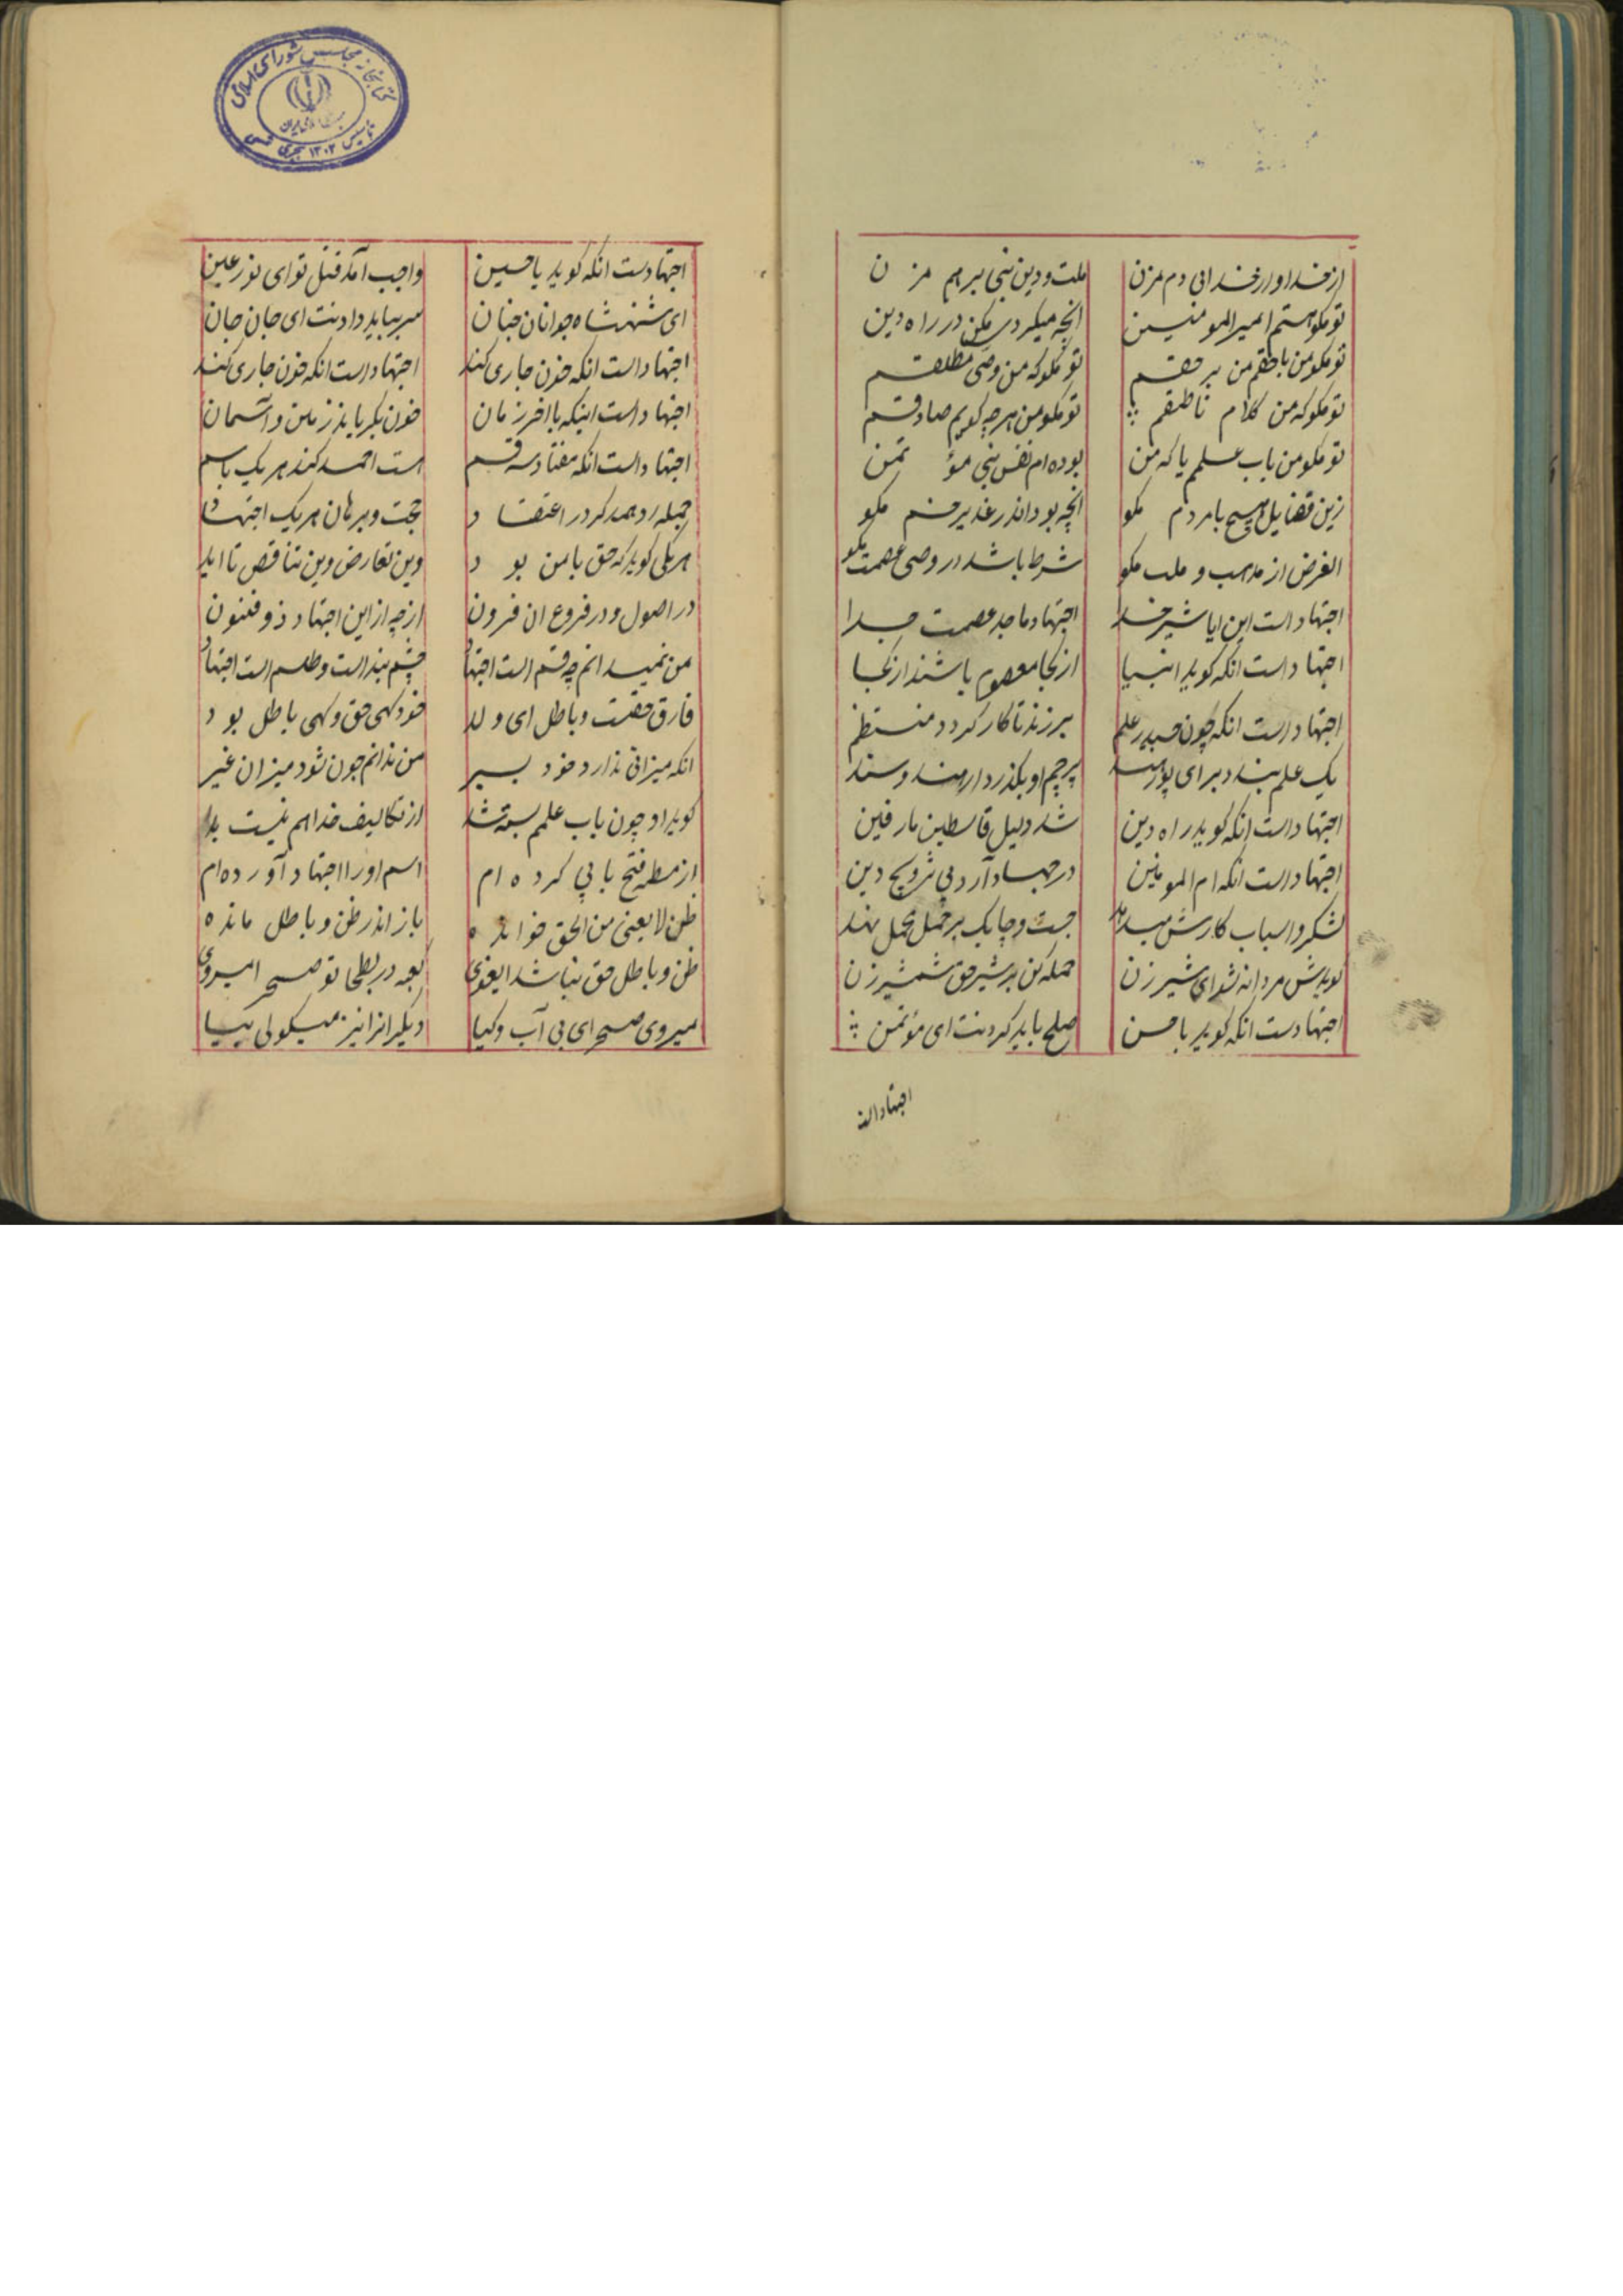 از خدا و از خدایی دم مزن ملت و دین نبی برهم مزن
تو مگو هستم امیرالمومنین انچه میکردی مکن در راه دین
تو مگو من باحقم من برحقم تو مگو که من وصی مطلقم
تو مگو که من کلام ناطقم تو مگو من هرچه گویم صادقم
تو مگو من باب علمم یا که من بوده ام نفس نبی مؤتمن
زین فضایل هیچ با مردم مگو انچه بود اندر غدیر خم مگو
الغرض از مذهب و ملت مگو شرط باشد در وصی عصمت مگو
اجتهاد است این ایا شیر خدا اجتهاد و ماجد عصمت جدا
اجتهاد است انکه گوید انبیا از کجا معصوم باشند از کجا
اجتهاد است انکه چون حیدر علم برزند تا کار گردد منتظم
یک علم بندد برای پور هند پرچم او بگذرد از هند و سند
اجتهاد است انکه گوید راه دین شد دلیل قاسطین مارقین
اجتهاد است انکه ام المومنین در جهاد آرد پی ترویج دین
لشکر و اسباب کارش میدهد جست و چابک بر جمل محمل نهد
گویدش مردانه شو ای شیر زن حمله کن بر شیر حق شمشیر زن
اجتهادست انکه گوید با حسن صلح باید کردنت ای مؤتمن
اجتهاد است
کتابخانه مجلس شورای اسلامی
تاسیس ۱۳۰۲ هجری شمسی
اجتهادست انکه گوید یا حسین واجب آمد قتل تو ای نور عین
ای شهنشاه جوانان جنان سر بباید دادنت ای جان جان
اجتهاد است انکه خون جاری کند اجتهاد است انکه خون جاری کند
اجتهاد است اینکه با اخر زمان خون بگریاند زمین و آسمان
اجتهاد است انکه هفتاد سه قسم امت احمد کند هر یک باسم
جمله رد همدگر در اعتقاد حجت و برهان هر یک اجتهاد
هر یکی گوید که حق با من بود وین تعارض وین تناقص تا ابد
در اصول و در فروع ان فرون از چه از این اجتهاد ذو فنون
من نمیدانم چه قسم است اجتهاد چشم بند است و طلسم است اجتهاد
فارق حقست و باطل ای ولد خود گهی حق و گهی باطل بود
انکه میزانی ندارد خود بسیر من ندانم چون شود میزان غیر
گوید او چون باب علمم بسته شد از تکالیف خدا هم نیست بد
از مظنه فتح بابی کرده ام اسم او را اجتهاد آورده ام
ظن لایغنی من الحق خوانده باز اندر ظن و باطل مانده
ظن و باطل حق نباشد ایغوی کعبه در بطحا تو صحرا میروی
میروی صحرای بی آب و گیا دیگرانرا نیز میگوئی بیا